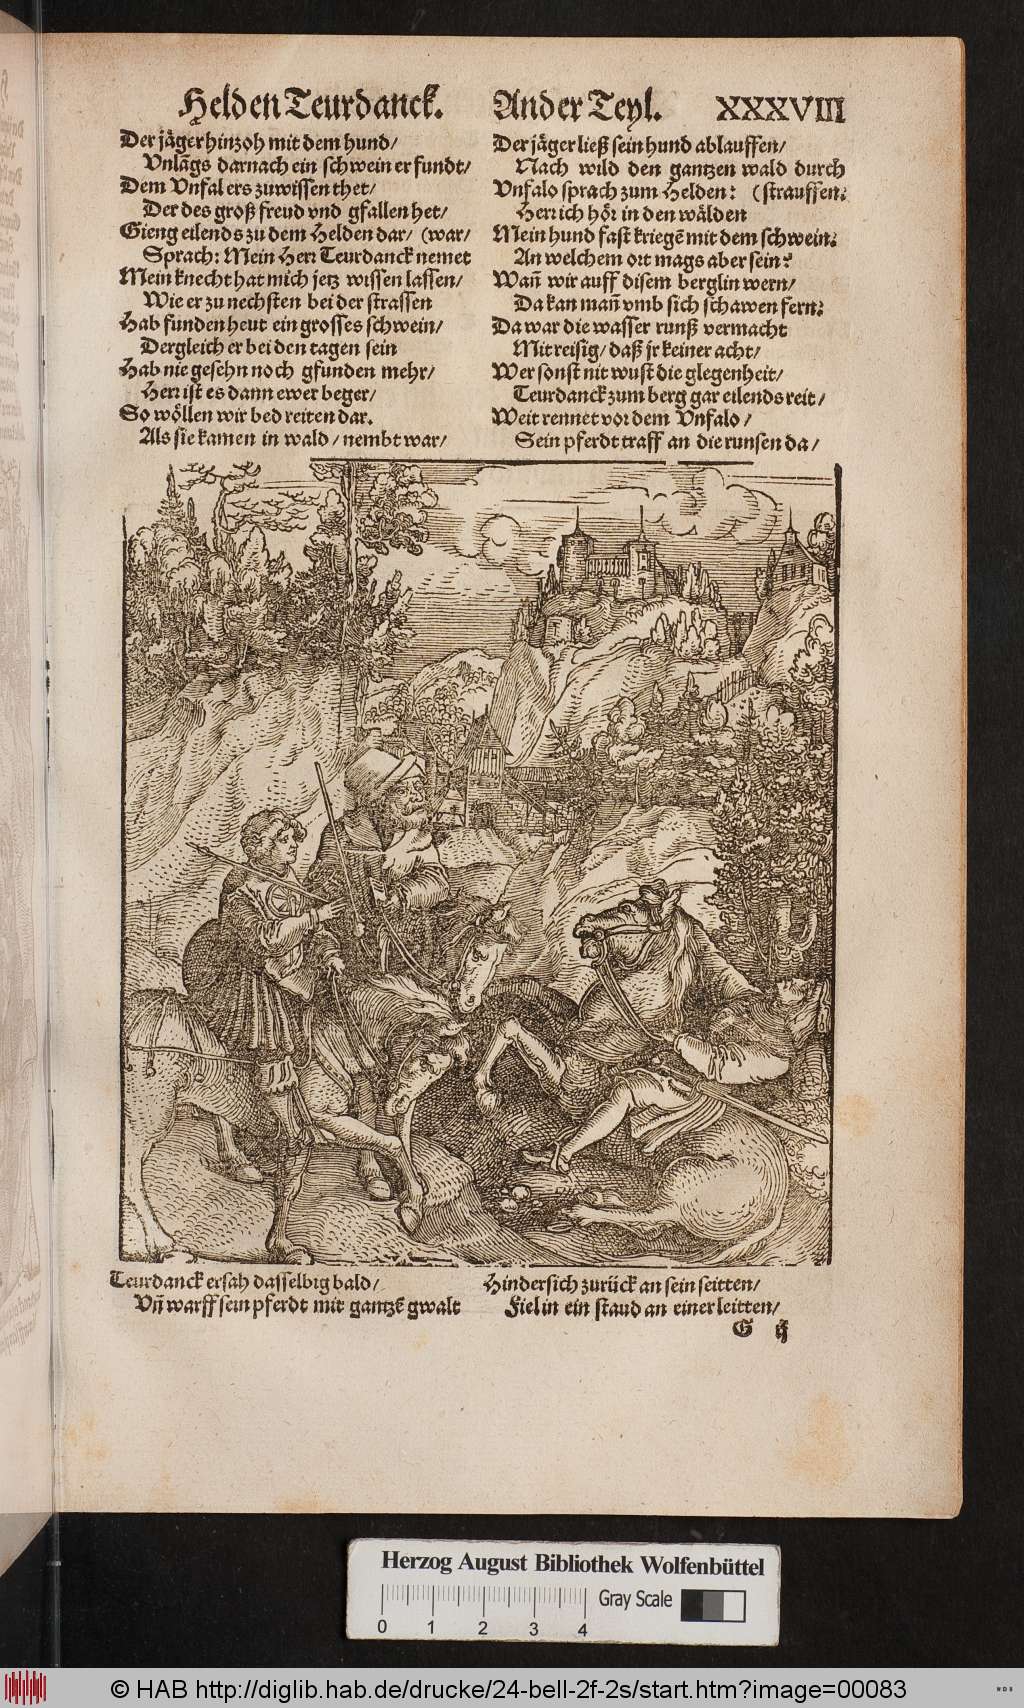 Helden Teurdanck. Ander Teyl. XXXVIII
Der jäger hin zoh mit dem hund/
Vnlãgs darnach ein schwein er fundt/
Dem Vnfal ers zuwissen thet/
Der des groß freud vnd gfallen het/
Gieng eilends zu dem Helden dar/ (war/
Sprach: Mein Herr Teurdanck nemet
Mein knecht hat mich jetz wissen lassen/
Wie er zu nechsten bei der strassen
Hab funden heut ein grosses schwein/
Dergleich er bei den tagen sein
Hab nie gesehn noch gfunden mehr/
Herr ist es dann ewer beger/
So wöllen wir bed reiten dar.
Als sie kamen in wald/ nembt war/
Der jäger ließ sein hund ablauffen/
Nach wild den gantzen wald durch
Vnfalo sprach zum Helden: (strauffen.
Herr ich hör in den wälden
Mein hund fast kriegẽ mit dem schwein.
An welchem ort mags aber sein?
Wañ wir auff disem berglin wern/
Da kan mañ vmb sich schawen fern.
Da war die wasser runß vermacht
Mit reisig/ daß jr keiner acht/
Wer sonst nit wust die glegenheit/
Teurdanck zum berg gar eilends reit/
Weit rennet vor dem Vnfalo/
Sein pferdt traff an die runsen da/
Teurdanck ersah dasselbig bald/
Vñ warff sein pferdt mit gantzẽ gwalt
Hindersich zurück an sein seitten/
Fiel in ein staud an einer leitten/
G ij
Herzog August Bibliothek Wolfenbüttel
Gray Scale
0 1 2 3 4
© HAB http://diglib.hab.de/drucke/24-bell-2f-2s/start.htm?image=00083